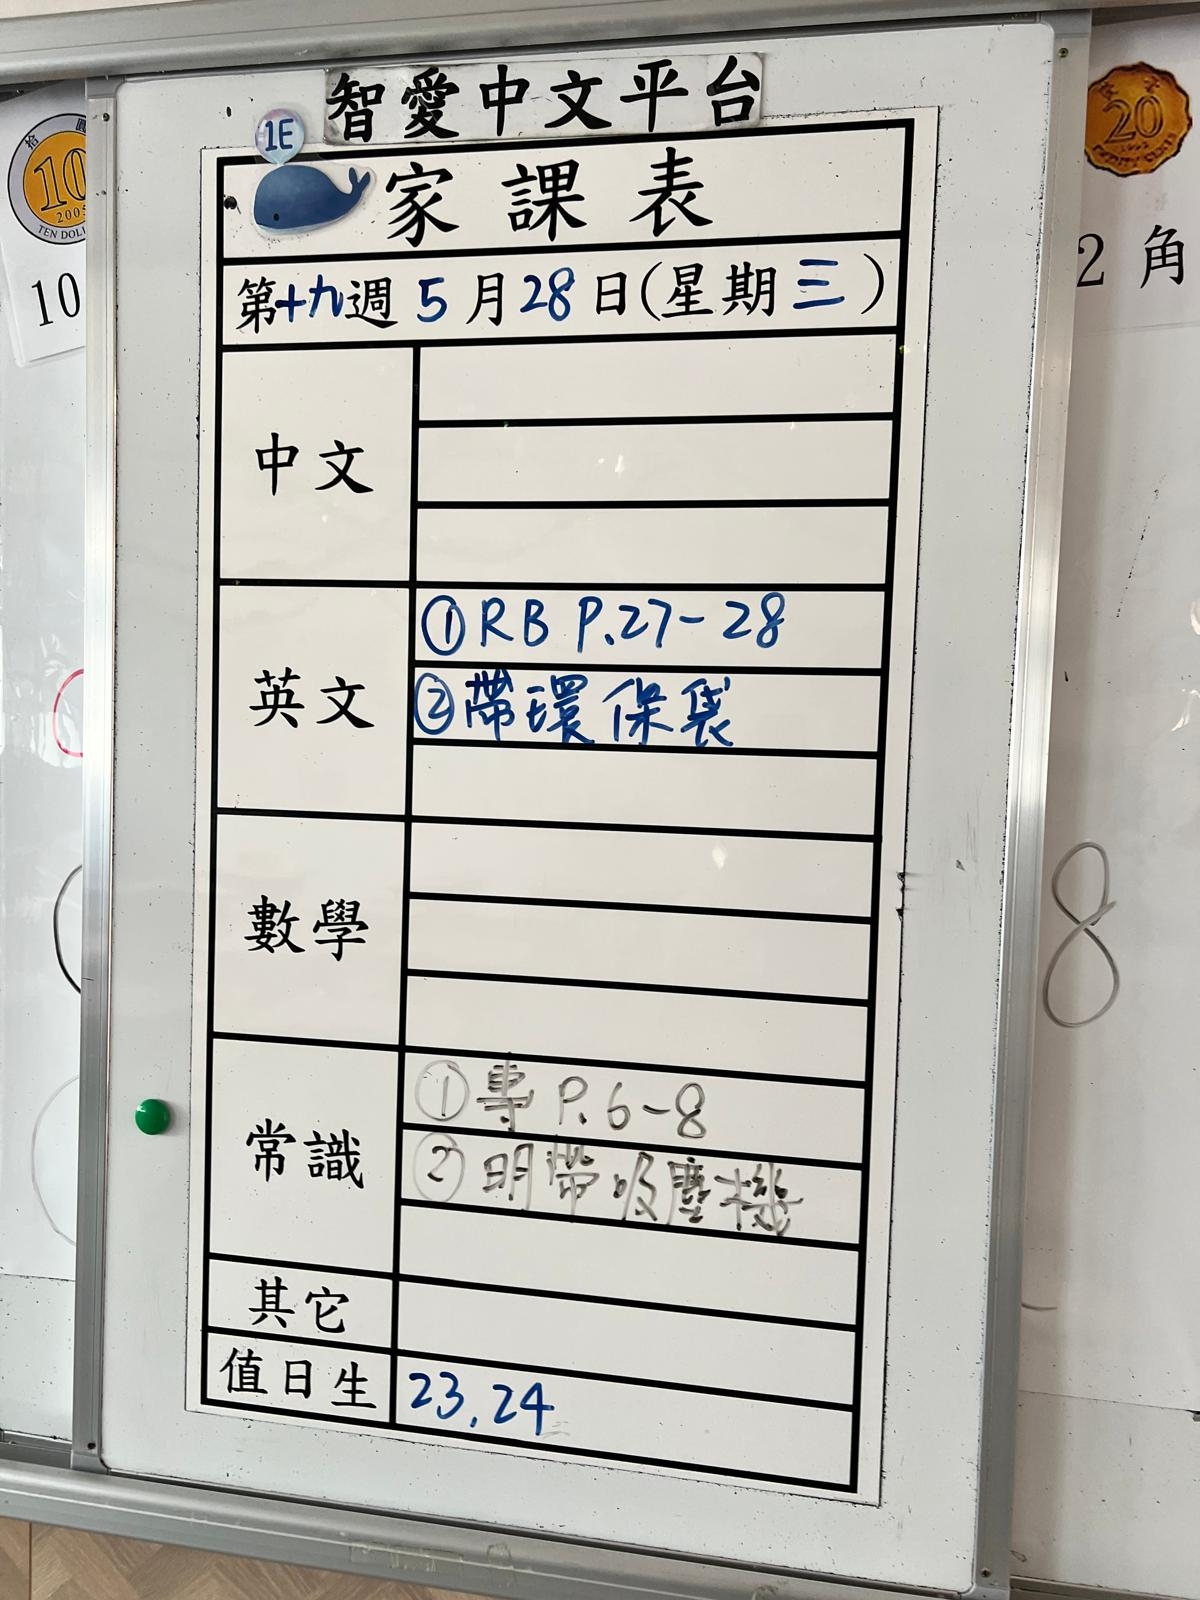 智愛中文平台
1E
家課表
第十九週 5月28日(星期三)
中文
英文
①RB P.27-28
②帶環保袋
數學
常識
①專 P.6-8
②明帶吸塵機
其它
值日生
23,24
拾圓
10
2005
10
20
2角
8